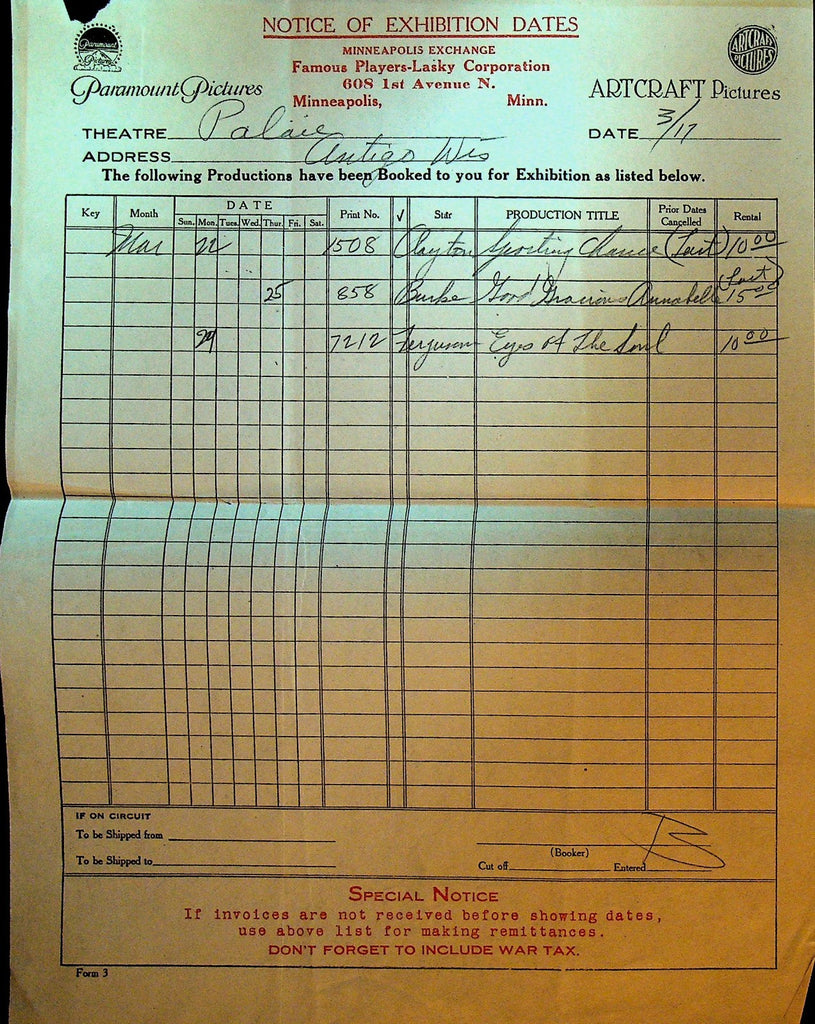 NOTICE OF EXHIBITION DATES
MINNEAPOLIS EXCHANGE
Famous Players-Lasky Corporation
608 1st Avenue N.
Minneapolis, Minn.
Paramount Pictures
Paramount Pictures
ARTCRAFT PICTURES
ARTCRAFT Pictures
THEATRE Palace DATE 3/17
ADDRESS Antigo Wis
The following Productions have been Booked to you for Exhibition as listed below.
Key Month DATE Print No. √ Star PRODUCTION TITLE Prior Dates Cancelled Rental
Sun. Mon. Tues. Wed. Thur. Fri. Sat.
Mar 22 1508 Clayton Sporting Chance (Last) 10 00
25 858 Burke Good Gracious Annabelle (Last) 15 00
29 7212 Ferguson Eyes of The Soul 10 00
IF ON CIRCUIT
To be Shipped from
To be Shipped to
(Booker)
Cut off Entered B
SPECIAL NOTICE
If invoices are not received before showing dates,
use above list for making remittances.
DON'T FORGET TO INCLUDE WAR TAX.
Form 3